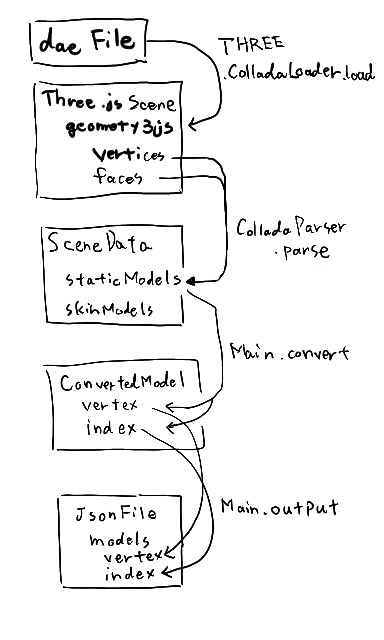 dae File
THREE
.ColladaLoader.load
Three.js Scene
geometry3js
vertices
faces
ColladaParser
.parse
SceneData
staticModels
skinModels
Main.convert
ConvertedModel
vertex
index
Main.output
JsonFile
models
vertex
index